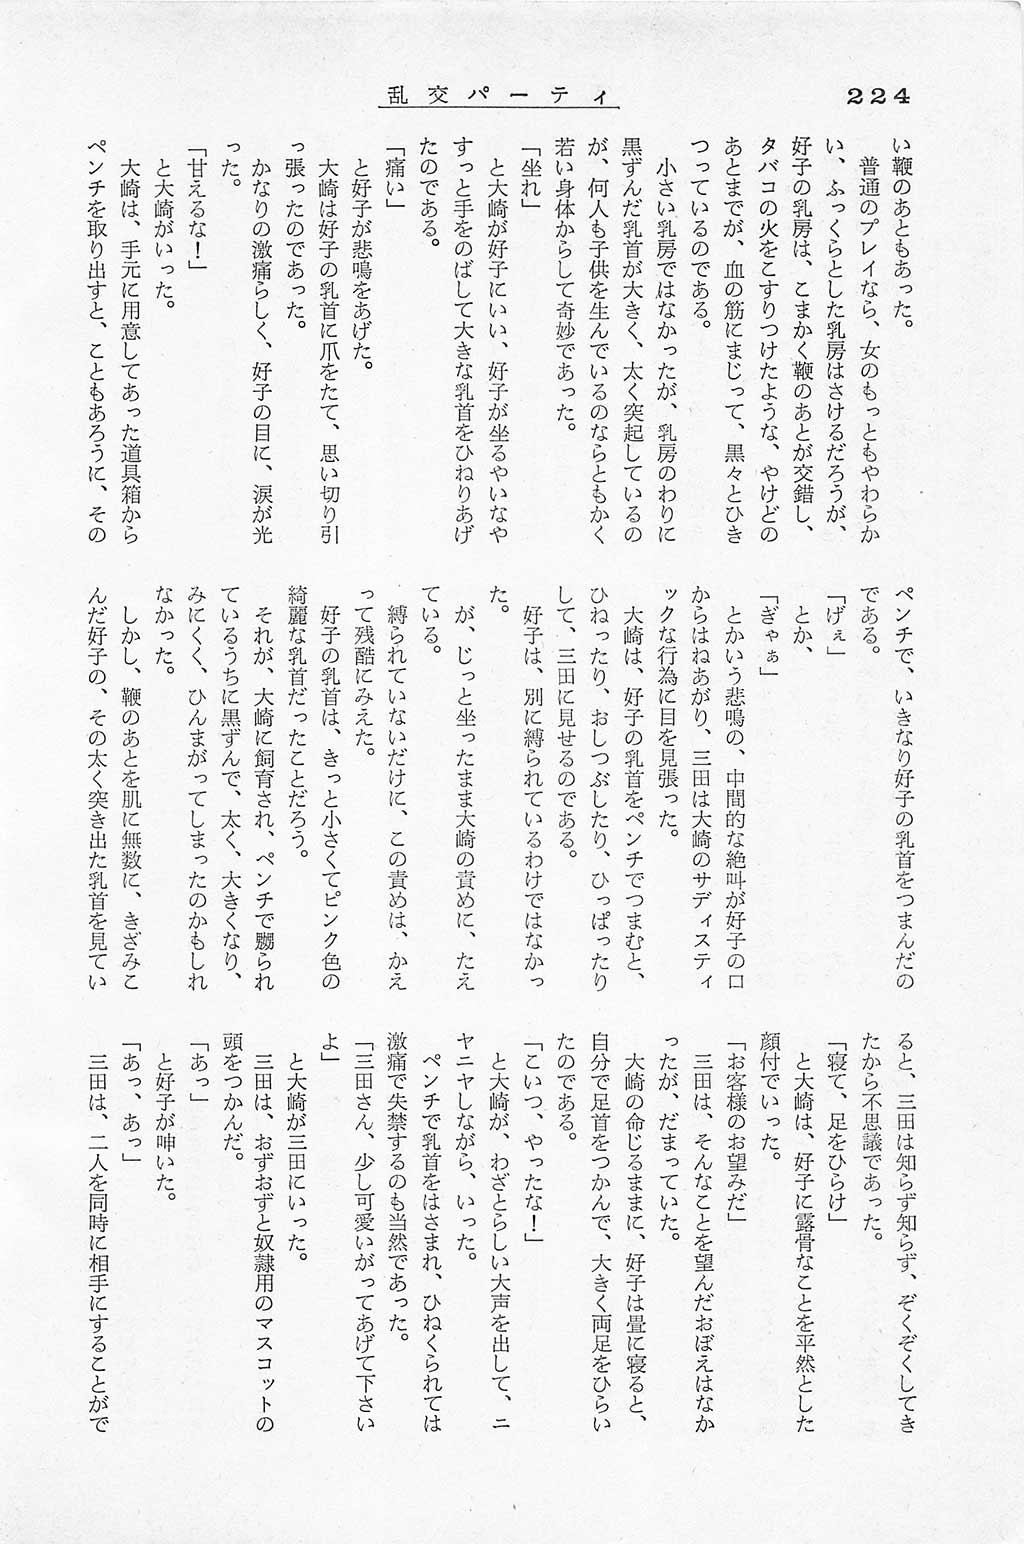 224
乱交パーティ
い鞭のあともあった。
普通のプレイなら、女のもっともやわらか
い、ふっくらとした乳房はさけるだろうが、
好子の乳房は、こまかく鞭のあとが交錯し、
タバコの火をこすりつけたような、やけどの
あとまでが、血の筋にまじって、黒々とひき
つっているのである。
小さい乳房ではなかったが、乳房のわりに
黒ずんだ乳首が大きく、太く突起しているの
が、何人も子供を生んでいるのならともかく
若い身体からして奇妙であった。
「坐れ」
と大崎が好子にいい、好子が坐るやいなや
すっと手をのばして大きな乳首をひねりあげ
たのである。
「痛い」
と好子が悲鳴をあげた。
大崎は好子の乳首に爪をたて、思い切り引
っ張ったのであった。
かなりの激痛らしく、好子の目に、涙が光
った。
「甘えるな！」
と大崎がいった。
大崎は、手元に用意してあった道具箱から
ペンチを取り出すと、こともあろうに、その
ペンチで、いきなり好子の乳首をつまんだの
である。
「げぇ」
とか、
「ぎゃぁ」
とかいう悲鳴の、中間的な絶叫が好子の口
からはねあがり、三田は大崎のサディスティ
ックな行為に目を見張った。
大崎は、好子の乳首をペンチでつまむと、
ひねったり、おしつぶしたり、ひっぱったり
して、三田に見せるのである。
好子は、別に縛られているわけではなかっ
た。
が、じっと坐ったまま大崎の責めに、たえ
ている。
縛られていないだけに、この責めは、かえ
って残酷にみえた。
好子の乳首は、きっと小さくてピンク色の
綺麗な乳首だったことだろう。
それが、大崎に飼育され、ペンチで嬲られ
ているうちに黒ずんで、太く、大きくなり、
みにくく、ひんまがってしまったのかもしれ
なかった。
しかし、鞭のあとを肌に無数に、きざみこ
んだ好子の、その太く突き出た乳首を見てい
ると、三田は知らず知らず、ぞくぞくしてき
たから不思議であった。
「寝て、足をひらけ」
と大崎は、好子に露骨なことを平然とした
顔付でいった。
「お客様のお望みだ」
三田は、そんなことを望んだおぼえはなか
ったが、だまっていた。
大崎の命じるままに、好子は畳に寝ると、
自分で足首をつかんで、大きく両足をひらい
たのである。
「こいつ、やったな！」
と大崎が、わざとらしい大声を出して、ニ
ヤニヤしながら、いった。
ペンチで乳首をはさまれ、ひねくられては
激痛で失禁するのも当然であった。
「三田さん、少し可愛いがってあげて下さい
よ」
と大崎が三田にいった。
三田は、おずおずと奴隷用のマスコットの
頭をつかんだ。
「あっ」
と好子が呻いた。
「あっ、あっ」
三田は、二人を同時に相手にすることがで